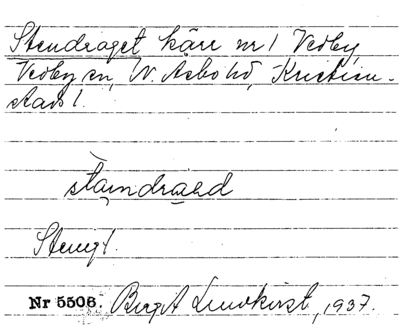 Stendraget kärr nr 1 Vedby,
Vedby sn, N. Åsbo hd, Kristian-
stads l.
staindraəd
Stengt.
Nr 5506. Birgit Lundkvist, 1937.